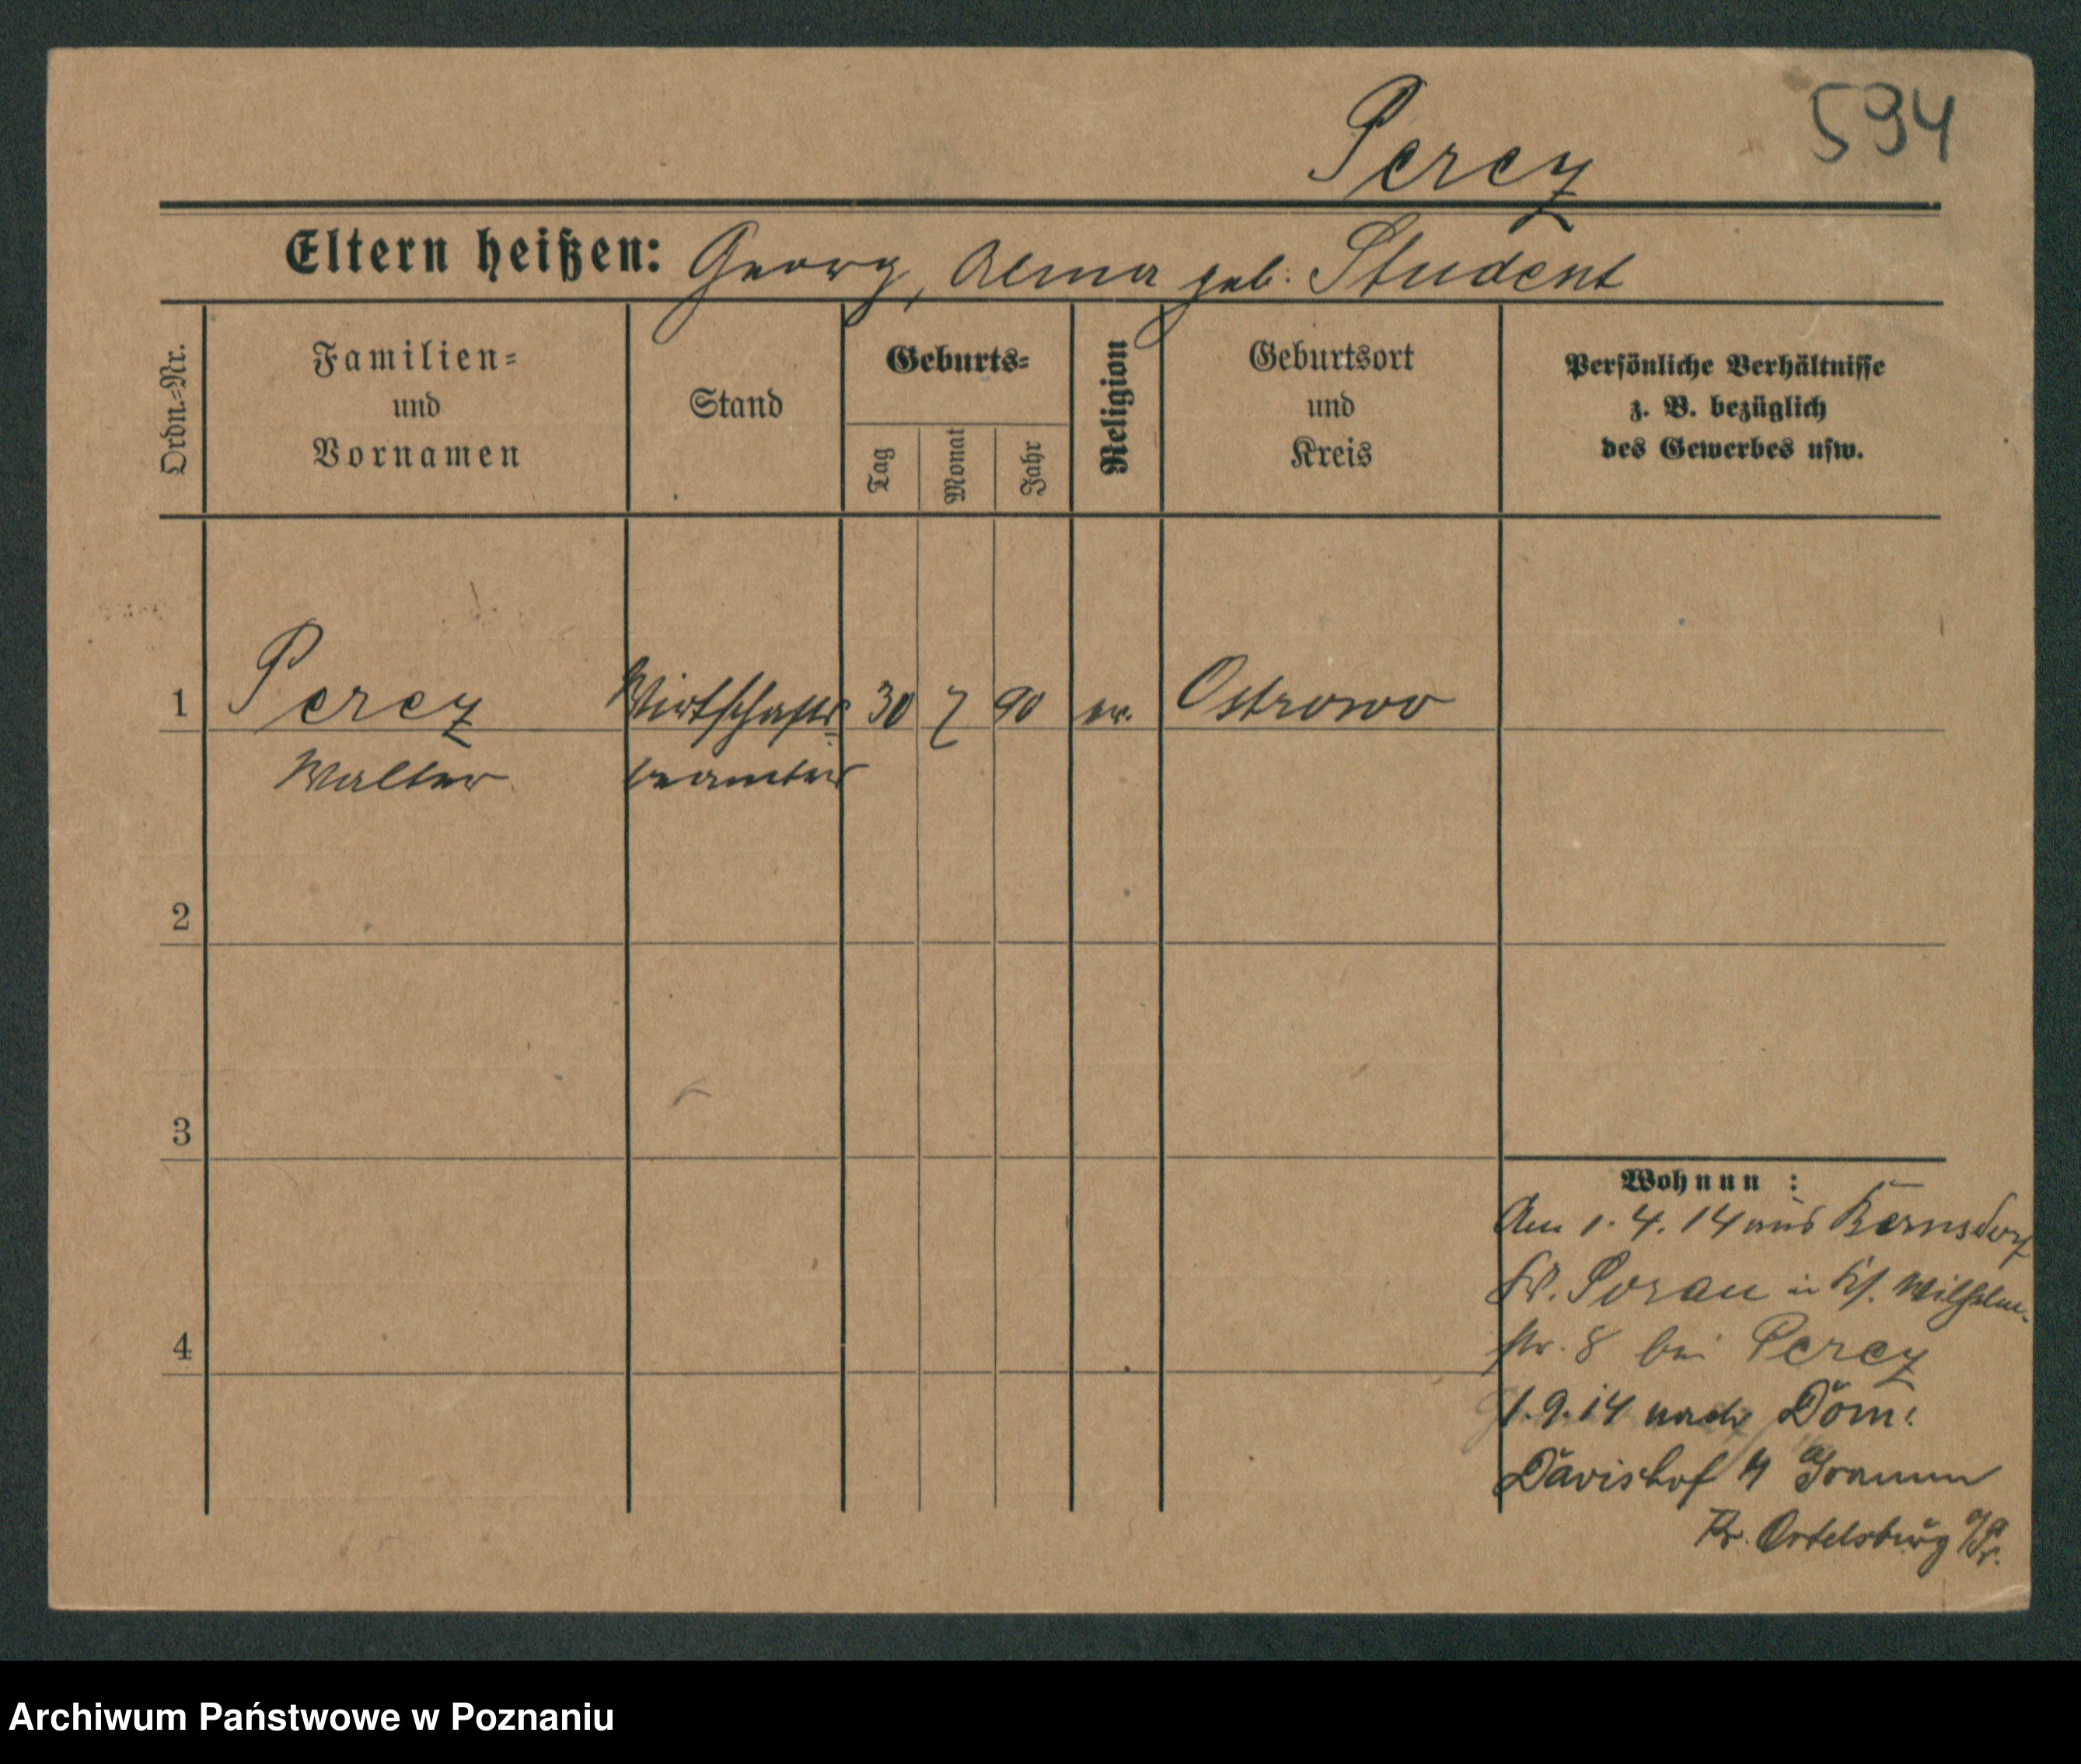 594
Percy
Eltern heißen: Georg, Alma geb. Student
Ordn.-Nr.
Familien-
und
Vornamen
Stand
Geburts-
Tag
Monat
Jahr
Religion
Geburtsort
und
Kreis
Persönliche Verhältnisse
z. B. bezüglich
des Gewerbes usw.
1 Percy Wirtschafts 30 7 90 ev. Ostrowo
Walter beamter
2
3
4
Wohnun :
Am 1.4.14 aus Bernsdorf
Kr. Sorau in Wilhelm-
str. 8 bei Percy
1.9.14 nach Dom.
Davishof
Kr. Ortelsburg O/Pr.
Archiwum Państwowe w Poznaniu